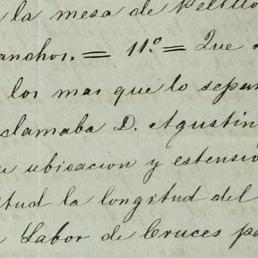 la mesa de Pelillo
anchos. = 11.º = Que
los mas que lo sepan
clamaba D. Agustin
u ubicacion y estensio
itud la longitud del
Labor de Cruces pa